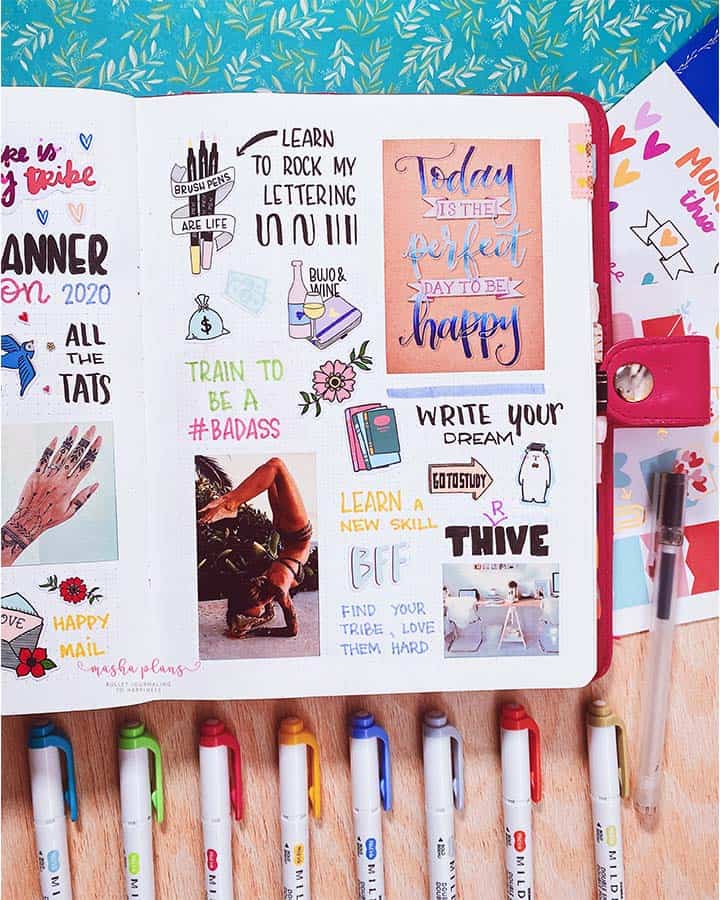 ke is
y tribe
ANNER
on 2020
ALL
THE
TATS
OVE
HAPPY
MAIL
BRUSH PENS
ARE LIFE
LEARN
TO ROCK MY
LETTERING
$
BUJO &
WINE
TRAIN TO
BE A
#BADASS
Today
IS THE
perfect
DAY TO BE
happy
WRITE YOUR
DREAM
GO TO STUDY
LEARN A
NEW SKILL
R
THIVE
BFF
FIND YOUR
TRIBE, LOVE
THEM HARD
masha plans
BULLET JOURNALING
TO HAPPINESS
this
MILD
MILD
MILD
MILD
MILD
MILD
MILD
MILD